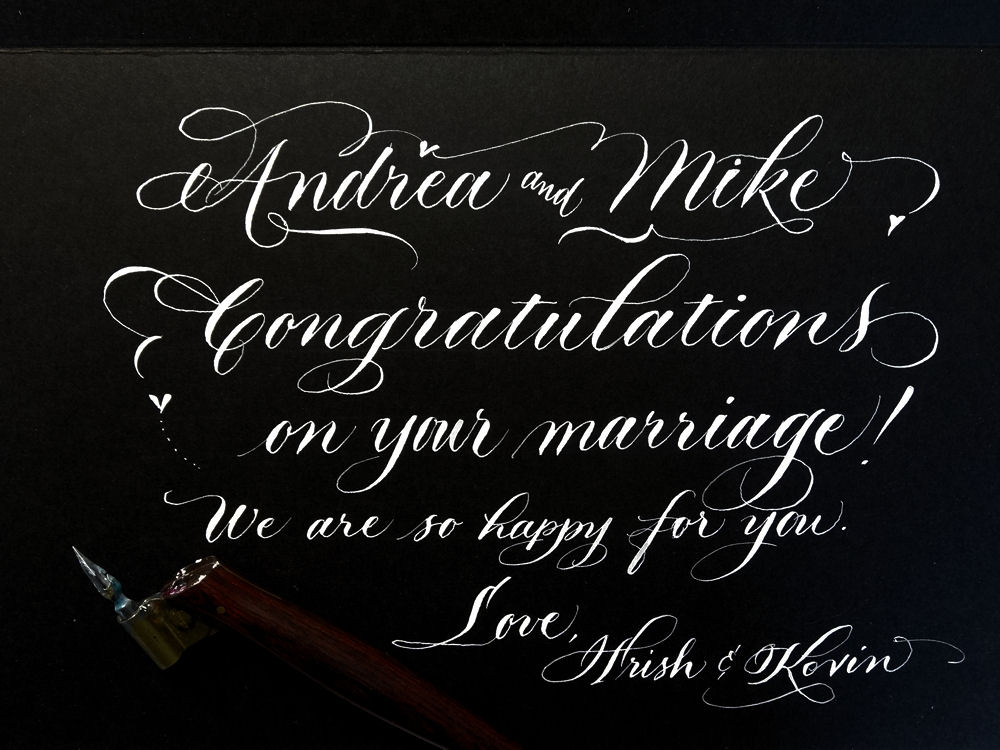 Andrea and Mike
Congratulations
on your marriage!
We are so happy for you.
Love,
& Kevin